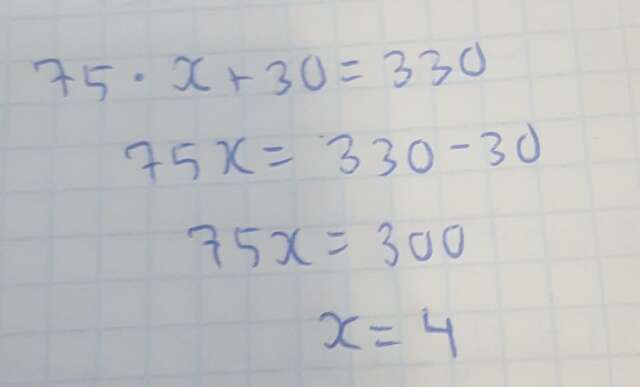 75 · x + 30 = 330
75x = 330 - 30
75x = 300
x = 4